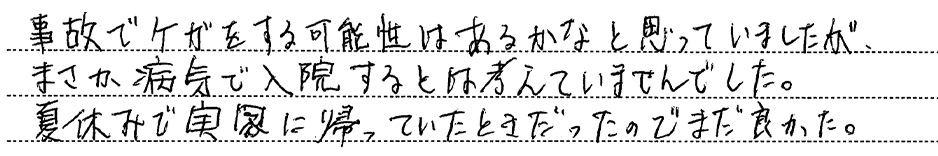 事故でケガをする可能性はあるかなと思っていましたが、
まさか病気で入院するとは考えていませんでした。
夏休みで実家に帰っていたときだったのでまだ良かった。